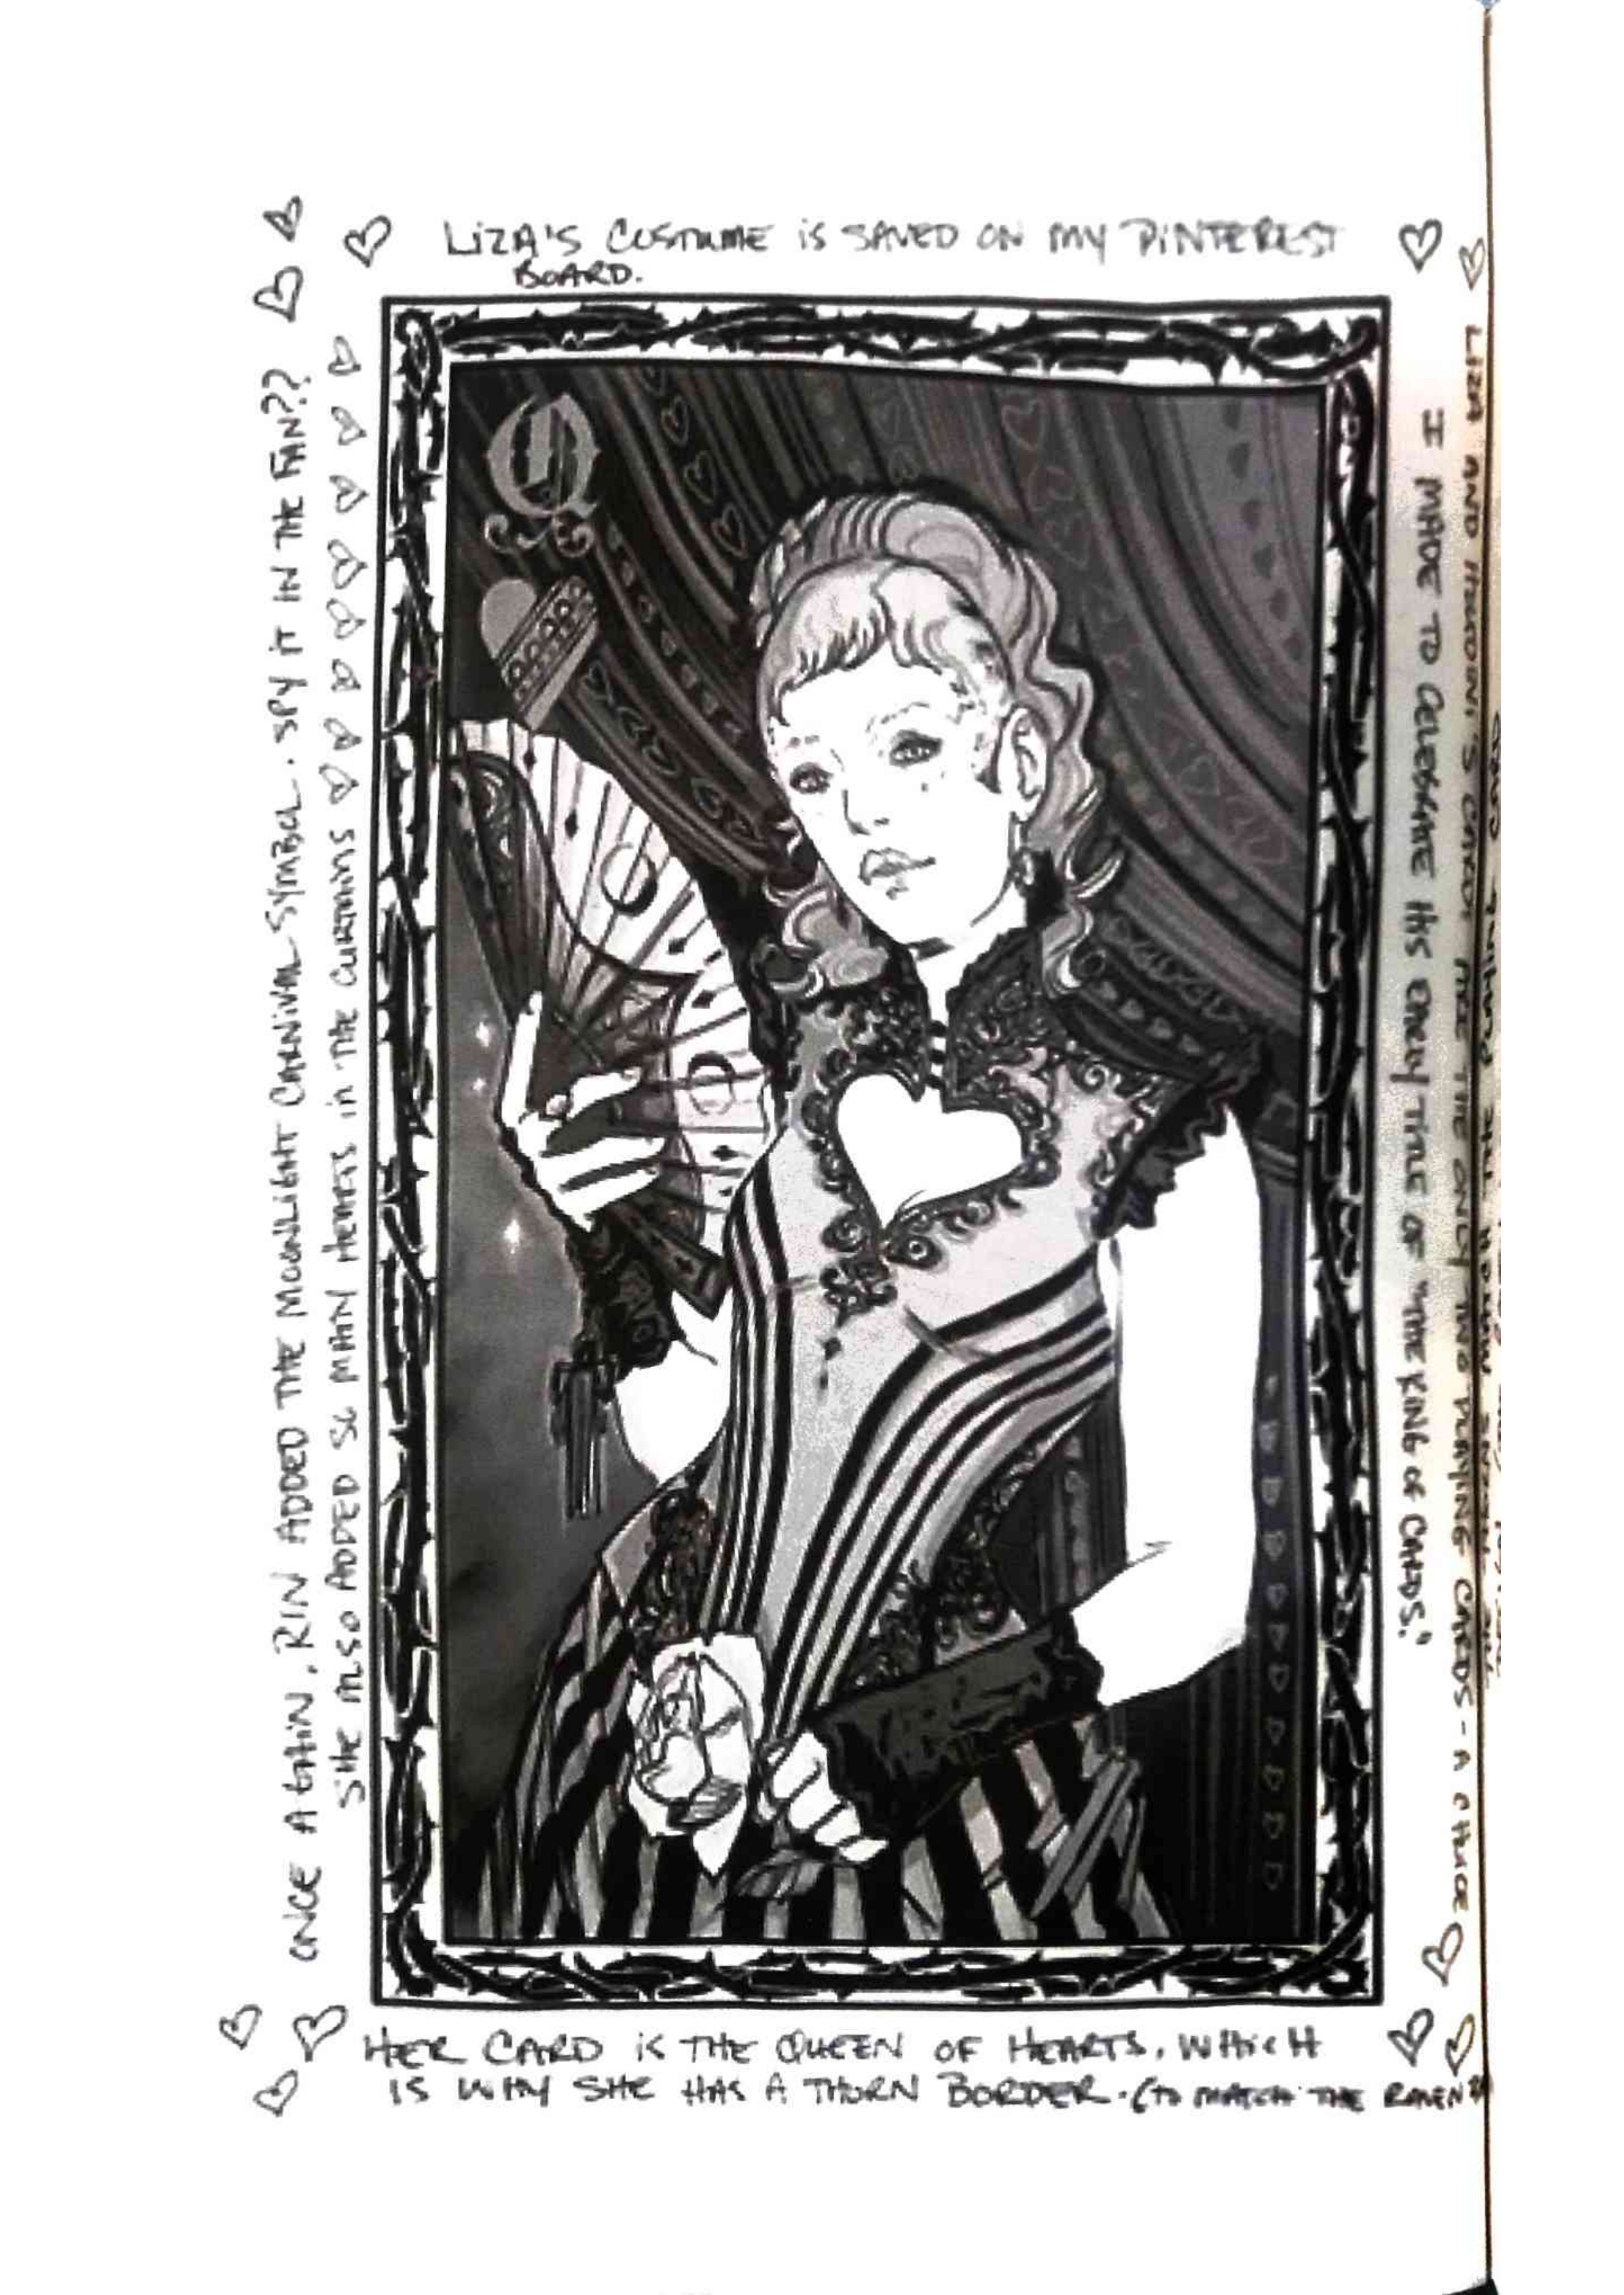 LIZA'S COSTUME IS SAVED ON MY PINTEREST
BOARD.
Q
ONCE AGAIN, RIN ADDED THE MOONLIGHT CARNIVAL SYMBOL. SPY IT IN THE FAN??
SHE ALSO ADDED SO MANY HEARTS IN THE CURTAINS
LIZA AND HOUDINI'S CARDS ARE THE ONLY TWO PLAYING CARDS - A CHOICE
I MADE TO CELEBRATE HIS EARLY TITLE OF "THE KING OF CARDS."
HER CARD IS THE QUEEN OF HEARTS, WHICH
IS WHY SHE HAS A THORN BORDER. (TO MATCH THE